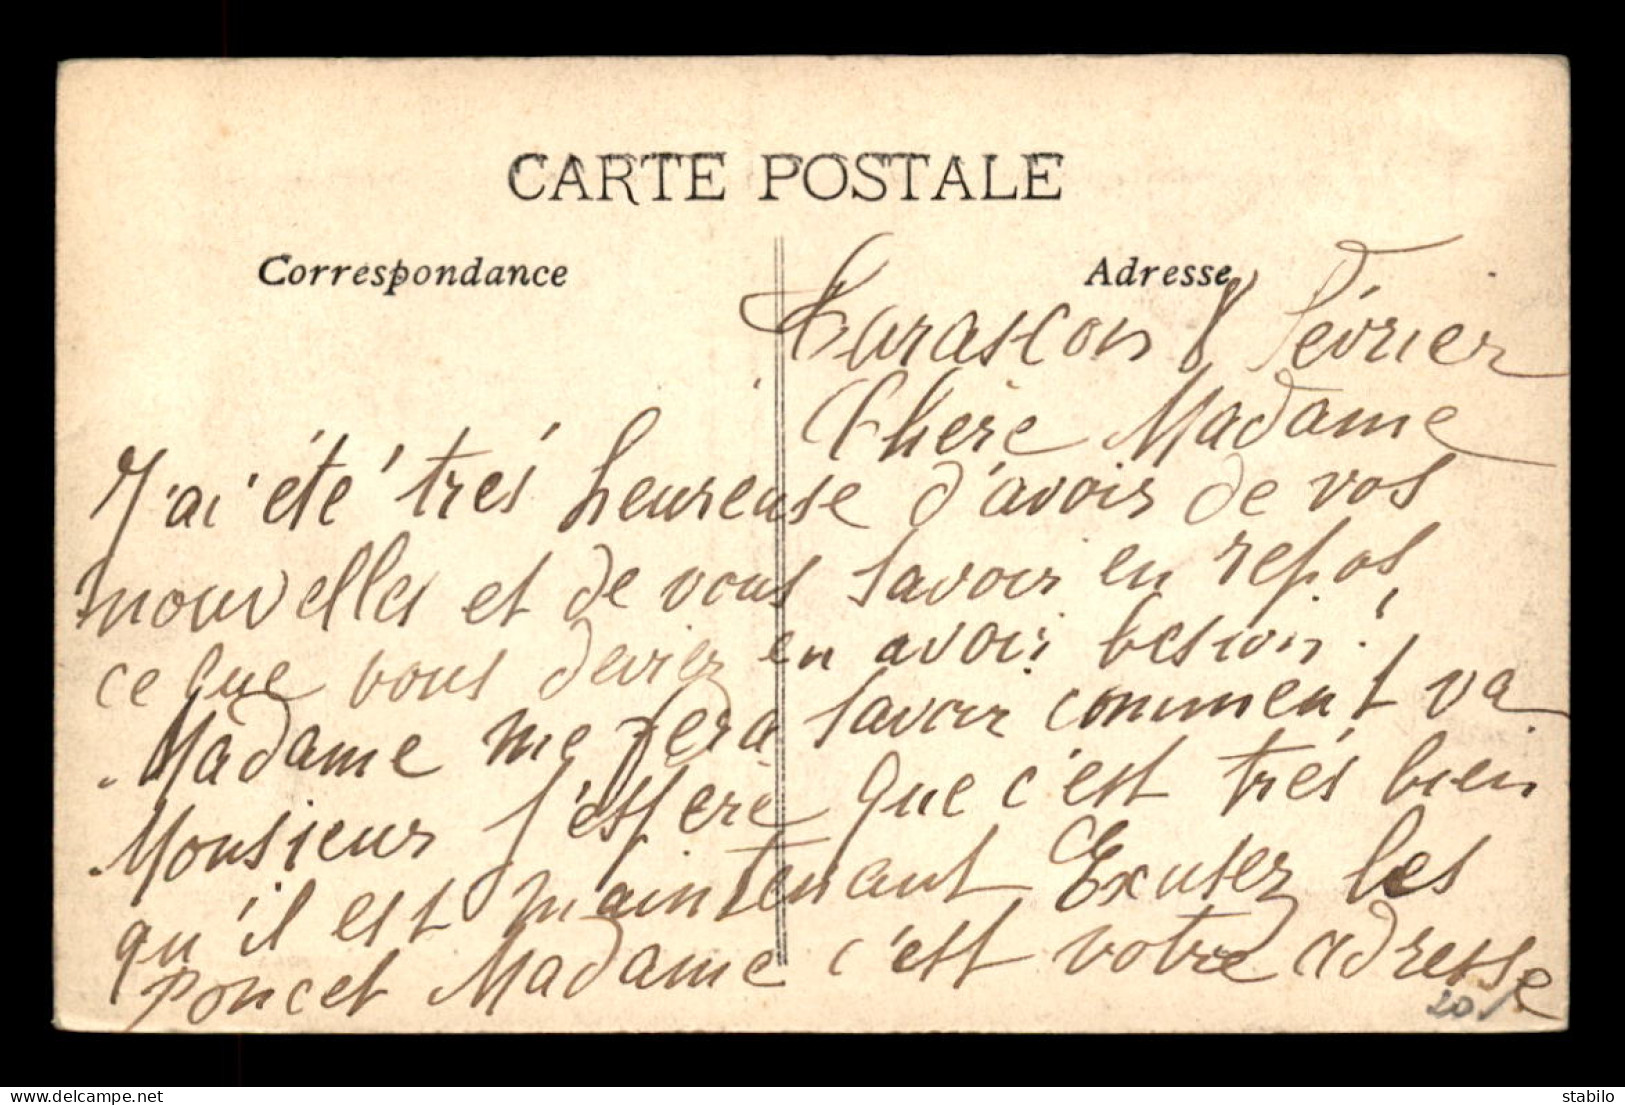 CARTE POSTALE
Correspondance
Adresse
Tarascon 8 Février
Chère Madame
J'ai été trés heureuse d'avoir de vos
nouvelles et de vous savoir en repos,
ce que vous deviez en avoir besoin!
Madame me fera savoir comment va
Monsieur j'espère que c'est trés bien
qu'il est maintenant Excusez les
poncet Madame c'est votre adresse
20
delcampe.net
stabilo